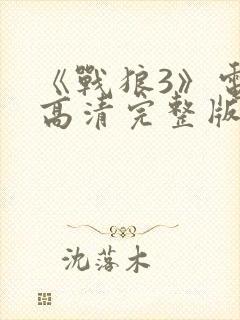 《戰狼3》電
高清完整版
沈落木